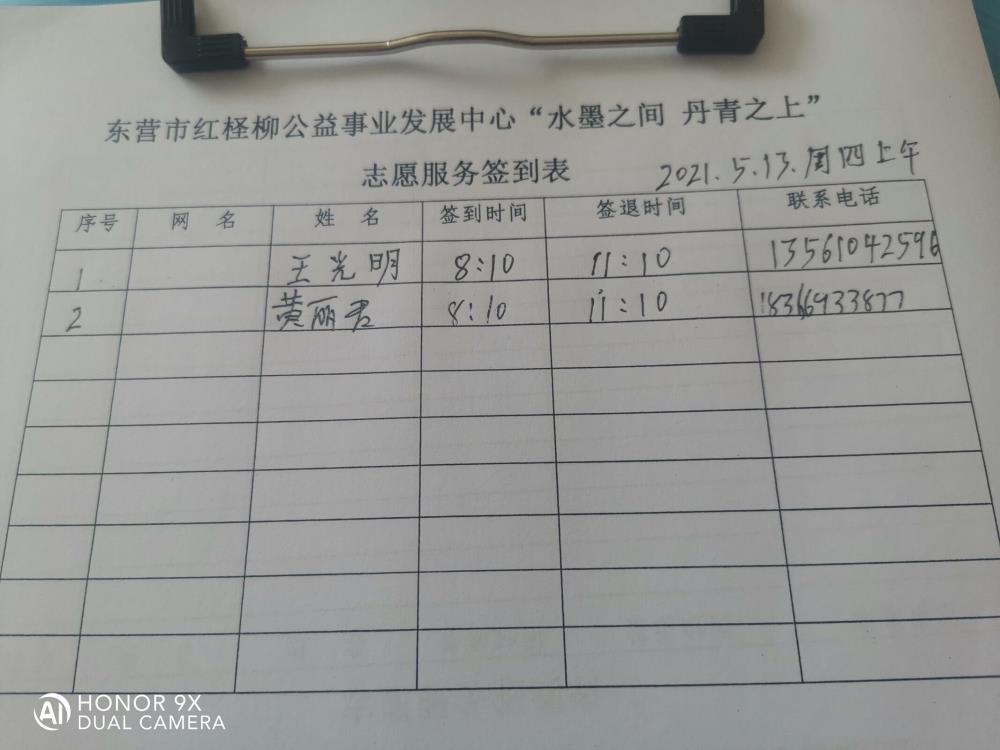 东营市红柽柳公益事业发展中心“水墨之间 丹青之上”
志愿服务签到表 2021.5.13.周四上午
序号 网 名 姓 名 签到时间 签退时间 联系电话
1 王光明 8:10 11:10 13561042596
2 黄丽君 8:10 11:10 18366933877
HONOR 9X
DUAL CAMERA